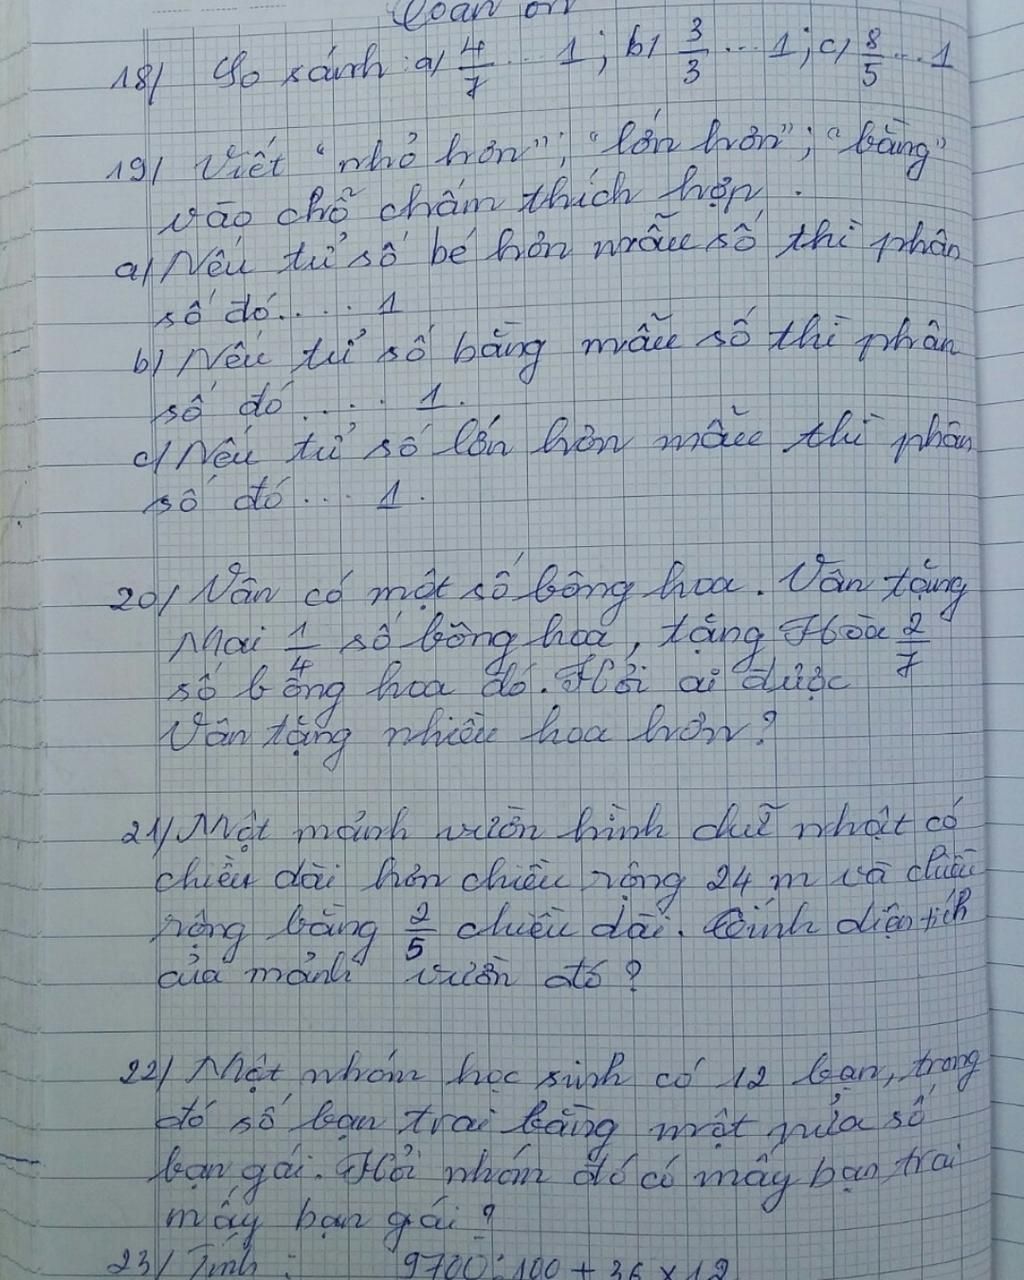 Toán ôn
18/ So sánh: a/ 4/7 ... 1; b/ 3/3 ... 1; c/ 8/5 ... 1
19/ Viết "nhỏ hơn"; "lớn hơn"; "bằng"
vào chỗ chấm thích hợp.
a/ Nếu tử số bé hơn mẫu số thì phân
số đó..... 1
b/ Nếu tử số bằng mẫu số thì phân
số đó ..... 1.
c/ Nếu tử số lớn hơn mẫu thì phân
số đó .... 1.
20/ Vân có một số bông hoa. Vân tặng
Mai 1/4 số bông hoa, tặng Hòa 2/7
số bông hoa đó. Hỏi ai được
Vân tặng nhiều hoa hơn?
21/ Một mảnh vườn hình chữ nhật có
chiều dài hơn chiều rộng 24 m và chiều
rộng bằng 2/5 chiều dài. Tính diện tích
của mảnh vườn đó?
22/ Một nhóm học sinh có 12 bạn, trong
đó số bạn trai bằng một nửa số
bạn gái. Hỏi nhóm đó có mấy bạn trai
mấy bạn gái?
23/ Tính: 9700:100 + 36 x 12